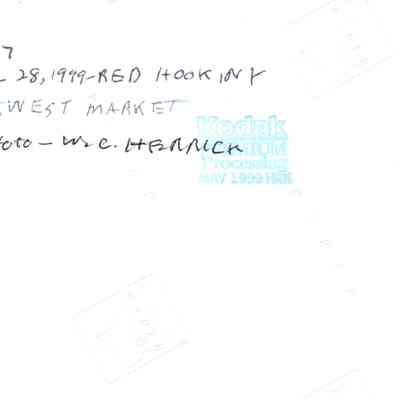 7
28, 1999-RED HOOK, NY
WEST MARKET
OTO - WC. HERRICK
Kodak
Processing
MAY 1999 H&K